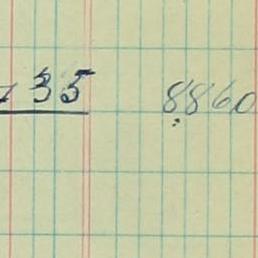 35 8860